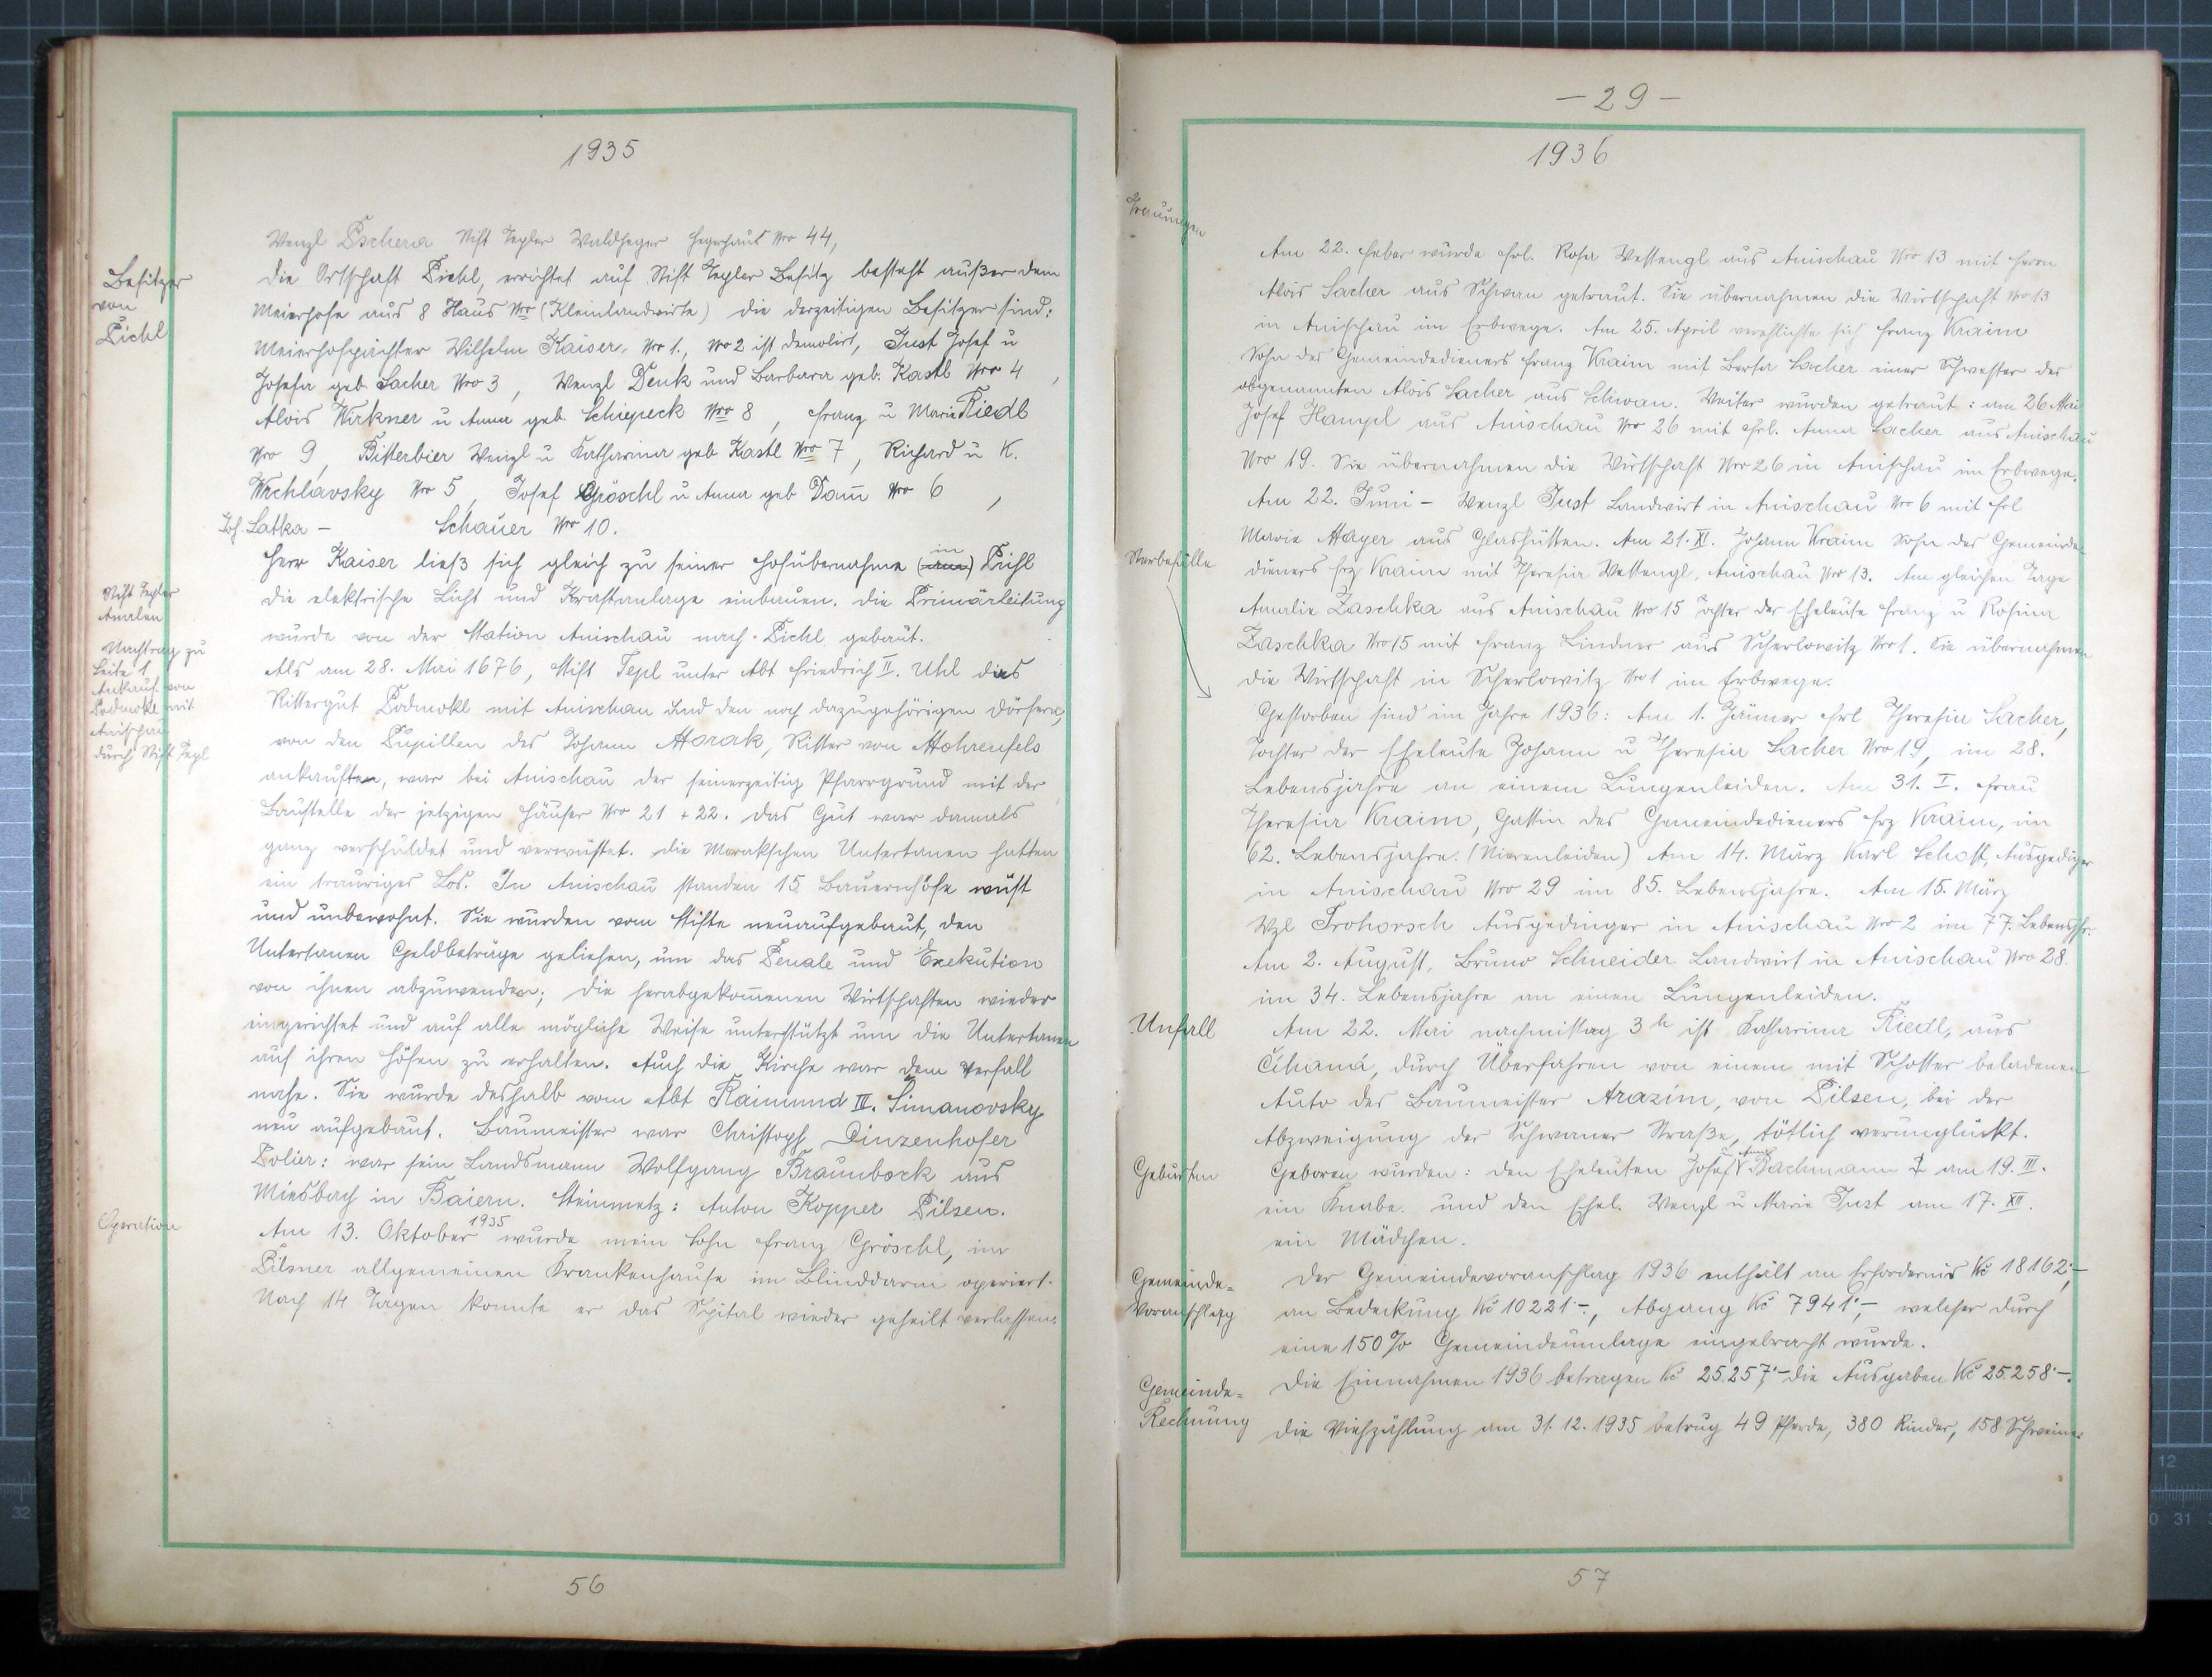 1935
Wenzl Pschera Stift Tepler Waldheger Hegerhaus Nro 44,
Besitzer
von
Pichl
Die Ortschaft Pichl, errichtet auf Stift Tepler Besitz besteht außer dem
Meierhofe aus 8 Haus Nro (Kleinlandwirte) die derzeitigen Besitzer sind:
Meierhofpächter Wilhelm Kaiser, Nro 1., No 2 ist demolirt, Just Josef u
Josefa geb. Sacher Nro 3, Wenzl Denk und Barbara geb. Kastl Nro 4,
Alois Wirkner u Anna geb. Schiepeck Nro 8, Franz u Marie Riedl
Nro 9, Bitterbier Wenzl u Katharina geb Kastl Nro 7, Richard u K.
Wrchlavsky Nro 5, Josef Gröschl u Anna geb Dam̄ Nro 6,
Joh. Latka – Schauer Nro 10.
Herr Kaiser ließ sich gleich zu seiner Hofübernahme in Pichl
die elektrische Licht und Kraftanlage einbauen. Die Primärleitung
wurde von der Station Anischau nach Pichl gebaut.
Stift Tepler
Analen
Nachtrag zu
Seite 1
Ankauf von
Podmokl mit
Anischau
durch Stift Tepl
Als am 28. Mai 1676, Stift Tepl unter Abt Friedrich II. Uhl das
Rittergut Podmokl mit Anischau und den noch dazugehörigen Dörfern,
von den Pupillen des Johann Morak, Ritter von Mohrenfels
ankauften, war bei Anischau der seinerzeitig Pfarrgrund mit der
Baustelle der jetzigen Häuser Nro 21 + 22. Das Gut war damals
ganz verschuldet und verwüstet. Die Morakschen Untertanen hatten
ein trauriges Los. In Anischau standen 15 Bauernhöfe wüst
und unbewohnt. Sie wurden vom Stifte neuaufgebaut, den
Untertanen Geldbeträge geliehen, um das Penale und Exekution
von ihnen abzuwenden; die herabgekom̄enen Wirtschaften wieder
eingerichtet und auf alle mögliche Weise unterstützt um die Untertanen
auf ihren Höfen zu erhalten. Auch die Kirche war dem Verfall
nahe. Sie wurde deshalb vom Abt Raimund III. Simanovsky
neu aufgebaut. Baumeister war Christoph Dinzenhofer
Polier: war sein Landsmann Wolfgang Braunbock aus
Miesbach in Baiern. Steinmetz: Anton Kopper Pilsen.
Operation
Am 13. Oktober 1935 wurde mein Sohn Franz Gröschl, im
Pilsner allgemeinen Krankenhause im Blinddarm operiert.
Nach 14 Tagen konnte er das Spital wieder geheilt verlassen.
56
– 29 –
1936
Trauungen
Am 22. Feber wurde Frl. Rosa Wettengl aus Anischau Nro 13 mit Herrn
Alois Sacher aus Schwan getraut. Sie übernahmen die Wirtschaft Nro 13
in Anischau im Erbwege. Am 25. April verehlichte sich Franz Kraim
Sohn des Gemeindedieners Franz Kraim mit Berta Sacher einer Schwester des
obgenannten Alois Sacher aus Schwan. Weiter wurden getraut: am 26 Mai
Josef Hampl aus Anischau Nro 26 mit Frl. Anna Sacher aus Anischau
Nro 19. Sie übernahmen die Wirtschaft Nro 26 in Anischau im Erbwege.
Am 22. Juni – Wenzl Just Landwirt in Anischau Nro 6 mit Frl
Marie Mayer aus Glashütten. Am 21. XI. Johann Kraim Sohn des Gemeinde-
Sterbefälle
dieners Frz Kraim mit Theresia Wettengl, Anischau Nro 13. Am gleichen Tage
Amalie Zaschka aus Anischau Nro 15 Tochter der Eheleute Franz u Rosina
Zaschka Nro 15 mit Franz Lindner aus Scherlowitz Nro 1. Sie übernahmen
die Wirtschaft in Scherlowitz Nro 1 im Erbwege.
Gestorben sind im Jahre 1936: Am 1. Jänner Frl Theresia Sacher,
Tochter der Eheleute Johann u Theresia Sacher Nro 19, im 28.
Lebensjahre an einem Lungenleiden. Am 31. I. Frau
Theresia Kraim, Gattin des Gemeindedieners Frz Kraim, im
62. Lebensjahre. (Nierenleiden) Am 14. März Karl Schott, Ausgedinger
in Anischau Nro 29 im 85. Lebensjahre. Am 15. März
Wzl Trohorsch Ausgedinger in Anischau Nro 2 im 77. Lebensjhr.
Am 2. August, Bruno Schneider Landwirt in Anischau Nro 28
im 34. Lebensjahre an einen Lungenleiden.
Unfall
Am 22. Mai nachmittag 3 h ist Katharina Riedl, aus
Číhaná, durch Überfahren von einem mit Schotter beladenen
Auto des Baumeister Arazim, von Pilsen, bei der
Abzweigung der Schwaner Straße, tötlich verunglückt.
Geburten
Geboren wurden: den Eheleuten Josef u Anna Bachmann am 19. III.
ein Knabe. und den Ehel. Wenzl u Marie Just am 17. XII.
ein Mädchen.
Gemeinde-
Voranschlag
Der Gemeindevoranschlag 1936 enthält an Erfordernis Kč 18162·–
an Bedeckung Kč 10221·–, Abgang Kč 7941·–, welcher durch
eine 150% Gemeindeumlage eingebracht wurde.
Gemeinde-
Rechnung
Die Einnahmen 1936 betragen Kč 25.257·– die Ausgaben Kč 25.258·–.
Die Viehzählung am 31. 12. 1935 betrug 49 Pferde, 380 Rinder, 158 Schweine
57